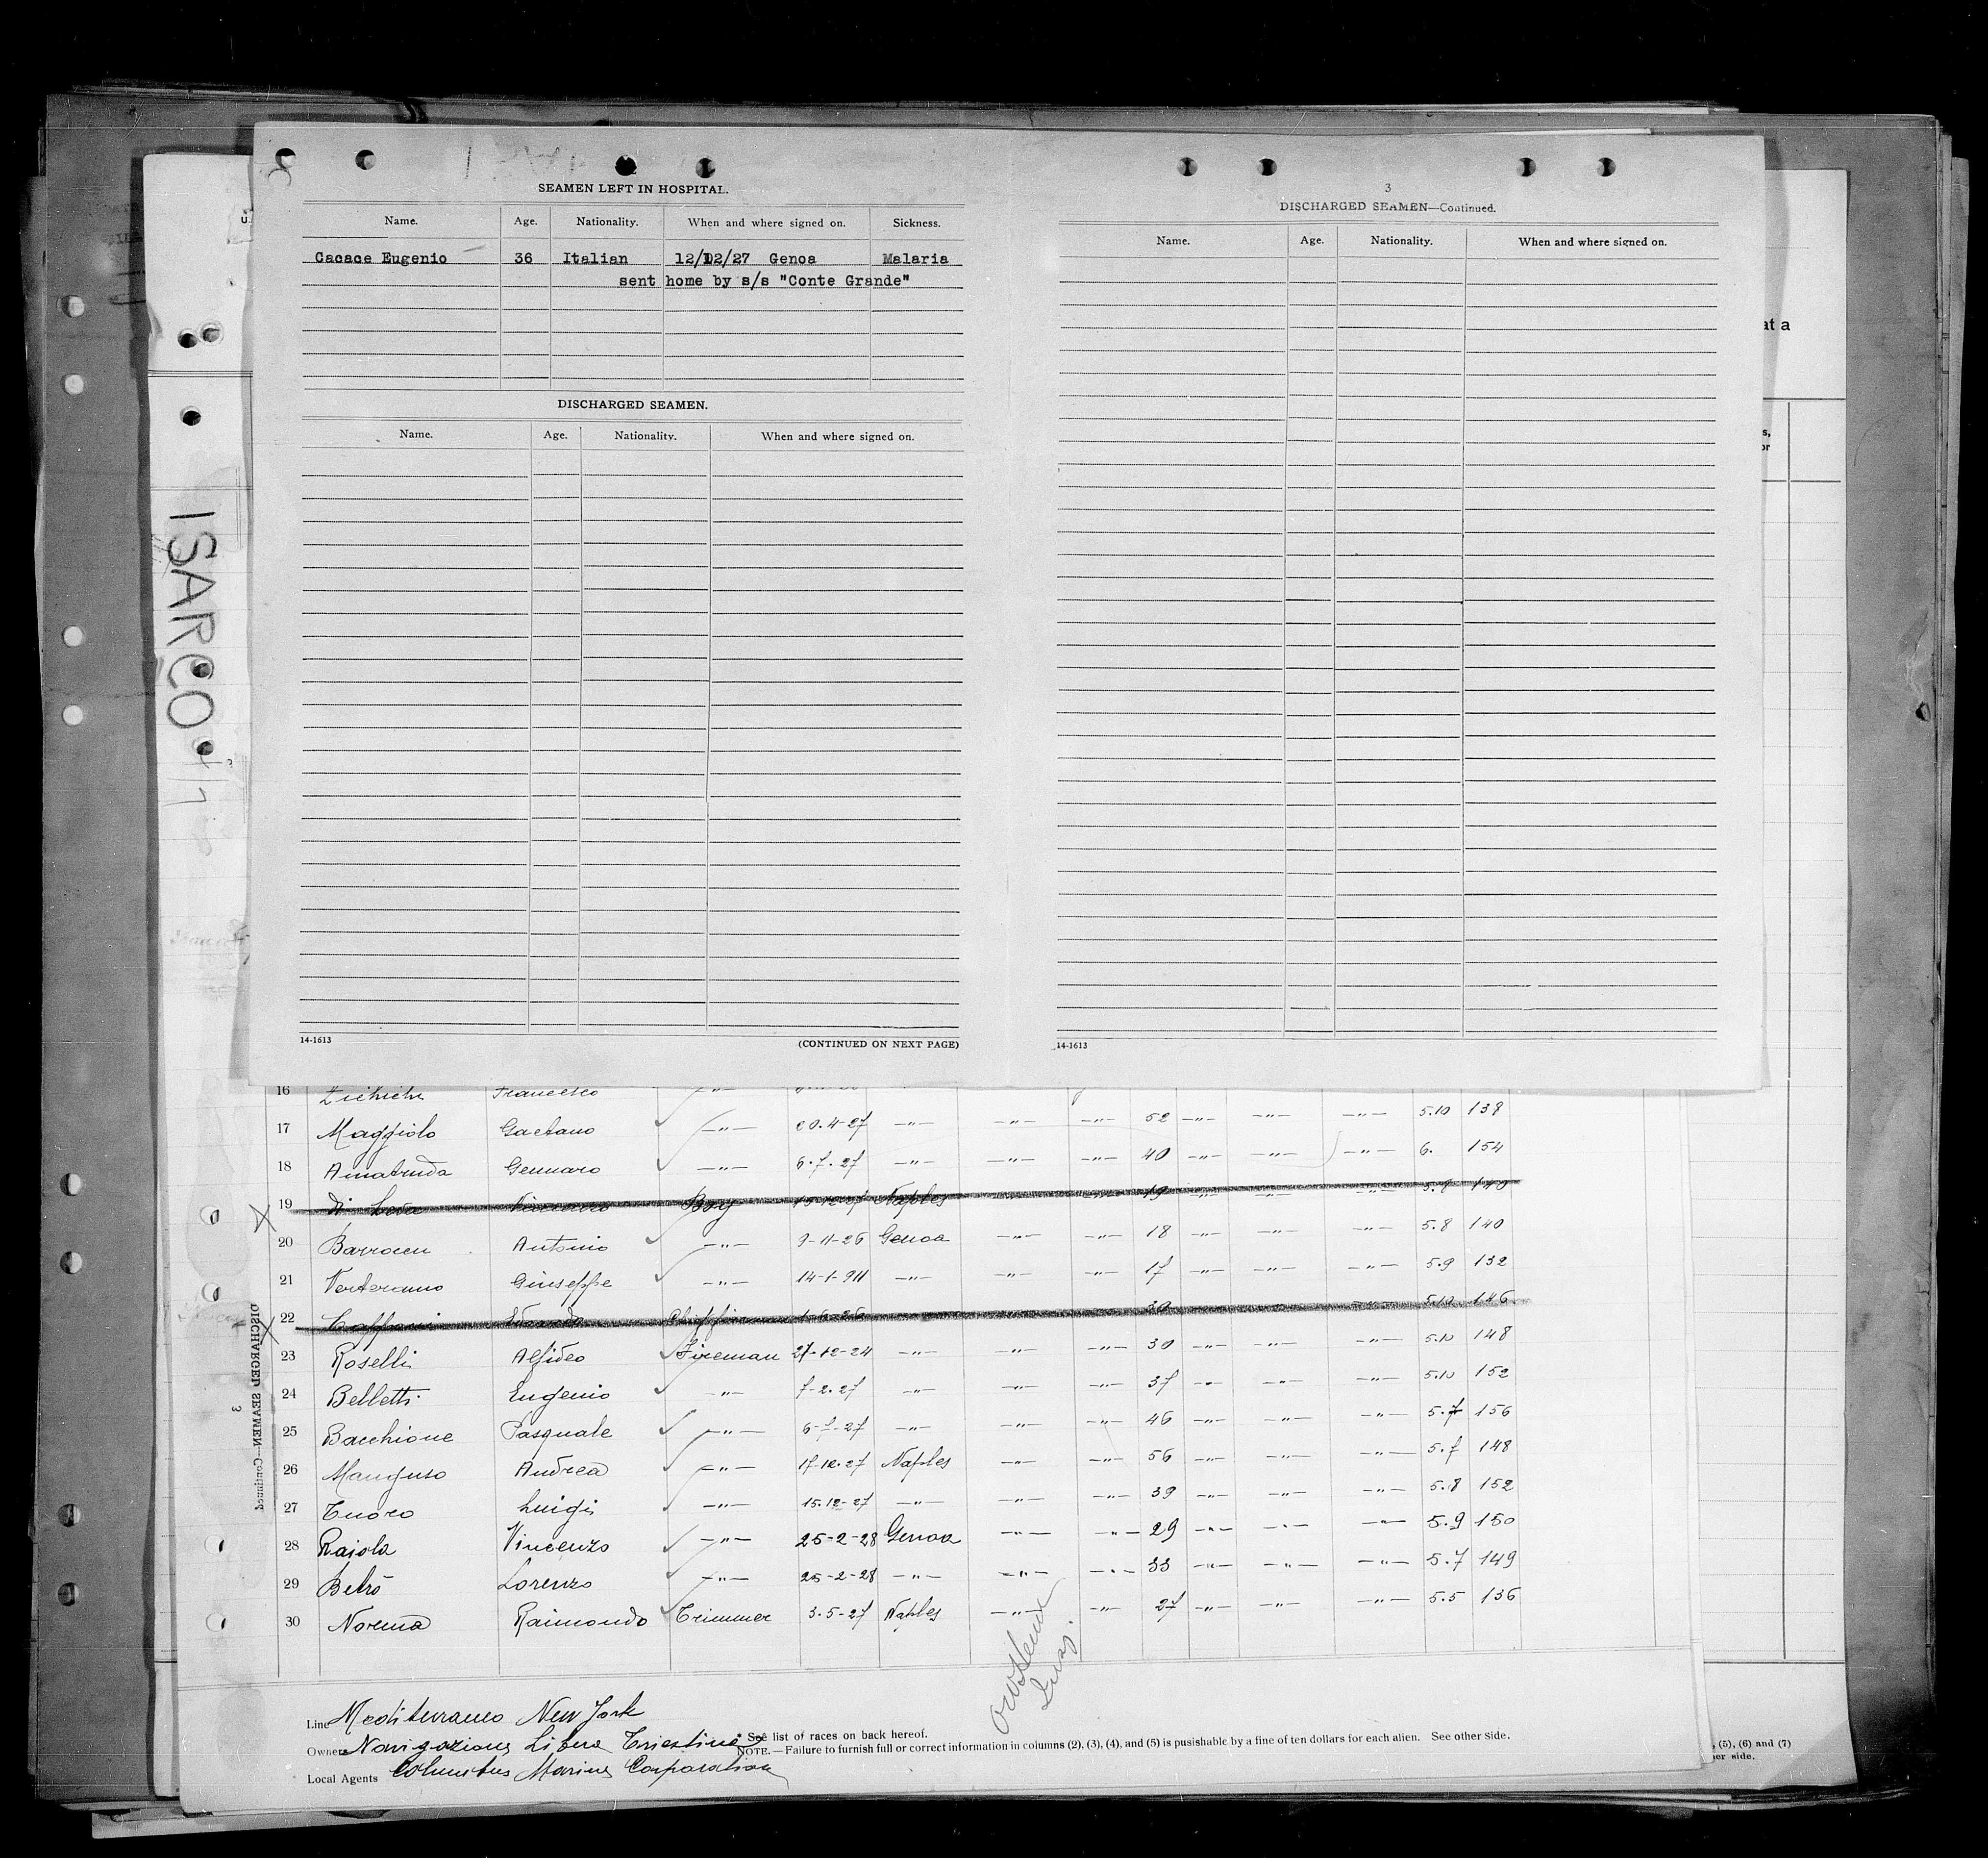 SEAMEN LEFT IN HOSPITAL.
Name. Age. Nationality. When and where signed on. Sickness.
Cacace Eugenio 36 Italian 12/12/27 Genoa Malaria
sent home by s/s "Conte Grande"
DISCHARGED SEAMEN.
Name. Age. Nationality. When and where signed on.
14-1613 (CONTINUED ON NEXT PAGE)
3
DISCHARGED SEAMEN—Continued.
Name. Age. Nationality. When and where signed on.
14-1613
at a
ISARCO
16 Francesco
17 Maggiolo Gaetano —"— 20.4-27 —"— —"— —"— 52 —"— —"— —"— 5.10 138
18 Amatruda Gennaro —"— 6.7.27 —"— —"— —"— 40 —"— —"— —"— 6. 154
19 Di Leva Boy Naples —"— —"— 19 —"— —"— —"— 5.8 140
20 Antonio —"— 9-11-26 Genoa —"— —"— 18 —"— —"— —"— 5.8 140
21 Giuseppe —"— 14-1-911 —"— —"— —"— 17 —"— —"— —"— 5.9 132
22 1-6-26 30 5.10 146
23 Roselli Alfideo Fireman 27-12-24 —"— —"— —"— 30 —"— —"— —"— 5.10 148
24 Belletti Eugenio —"— 7-2.27 —"— —"— —"— 37 —"— —"— —"— 5.10 152
25 Bacchione Pasquale —"— 6-7-27 —"— —"— —"— 46 —"— —"— —"— 5.7 156
26 Manguso Andrea —"— 17-12-27 Naples —"— —"— 56 —"— —"— —"— 5.7 148
27 Tuoro Luigi —"— 15.12-27 —"— —"— —"— 39 —"— —"— —"— 5.8 152
28 Raiola Vincenzo —"— 25-2-28 Genoa —"— —"— 29 —"— —"— —"— 5.9 150
29 Betrò Lorenzo —"— 25-2-28 —"— —"— —"— 33 —"— —"— —"— 5.7 149
30 Norma Raimondo Trimmer 3-5-27 Naples —"— —"— 27 —"— —"— —"— 5.5 136
DISCHARGED SEAMEN—Continued.
3
Line Mediterraneo New York
Owners Navigazione Libera Triestina
Local Agents Columbus Marine Corporation
* See list of races on back hereof.
NOTE.—Failure to furnish full or correct information in columns (2), (3), (4), and (5) is pusishable by a fine of ten dollars for each alien. See other side.
, (5), (6) and (7)
her side.